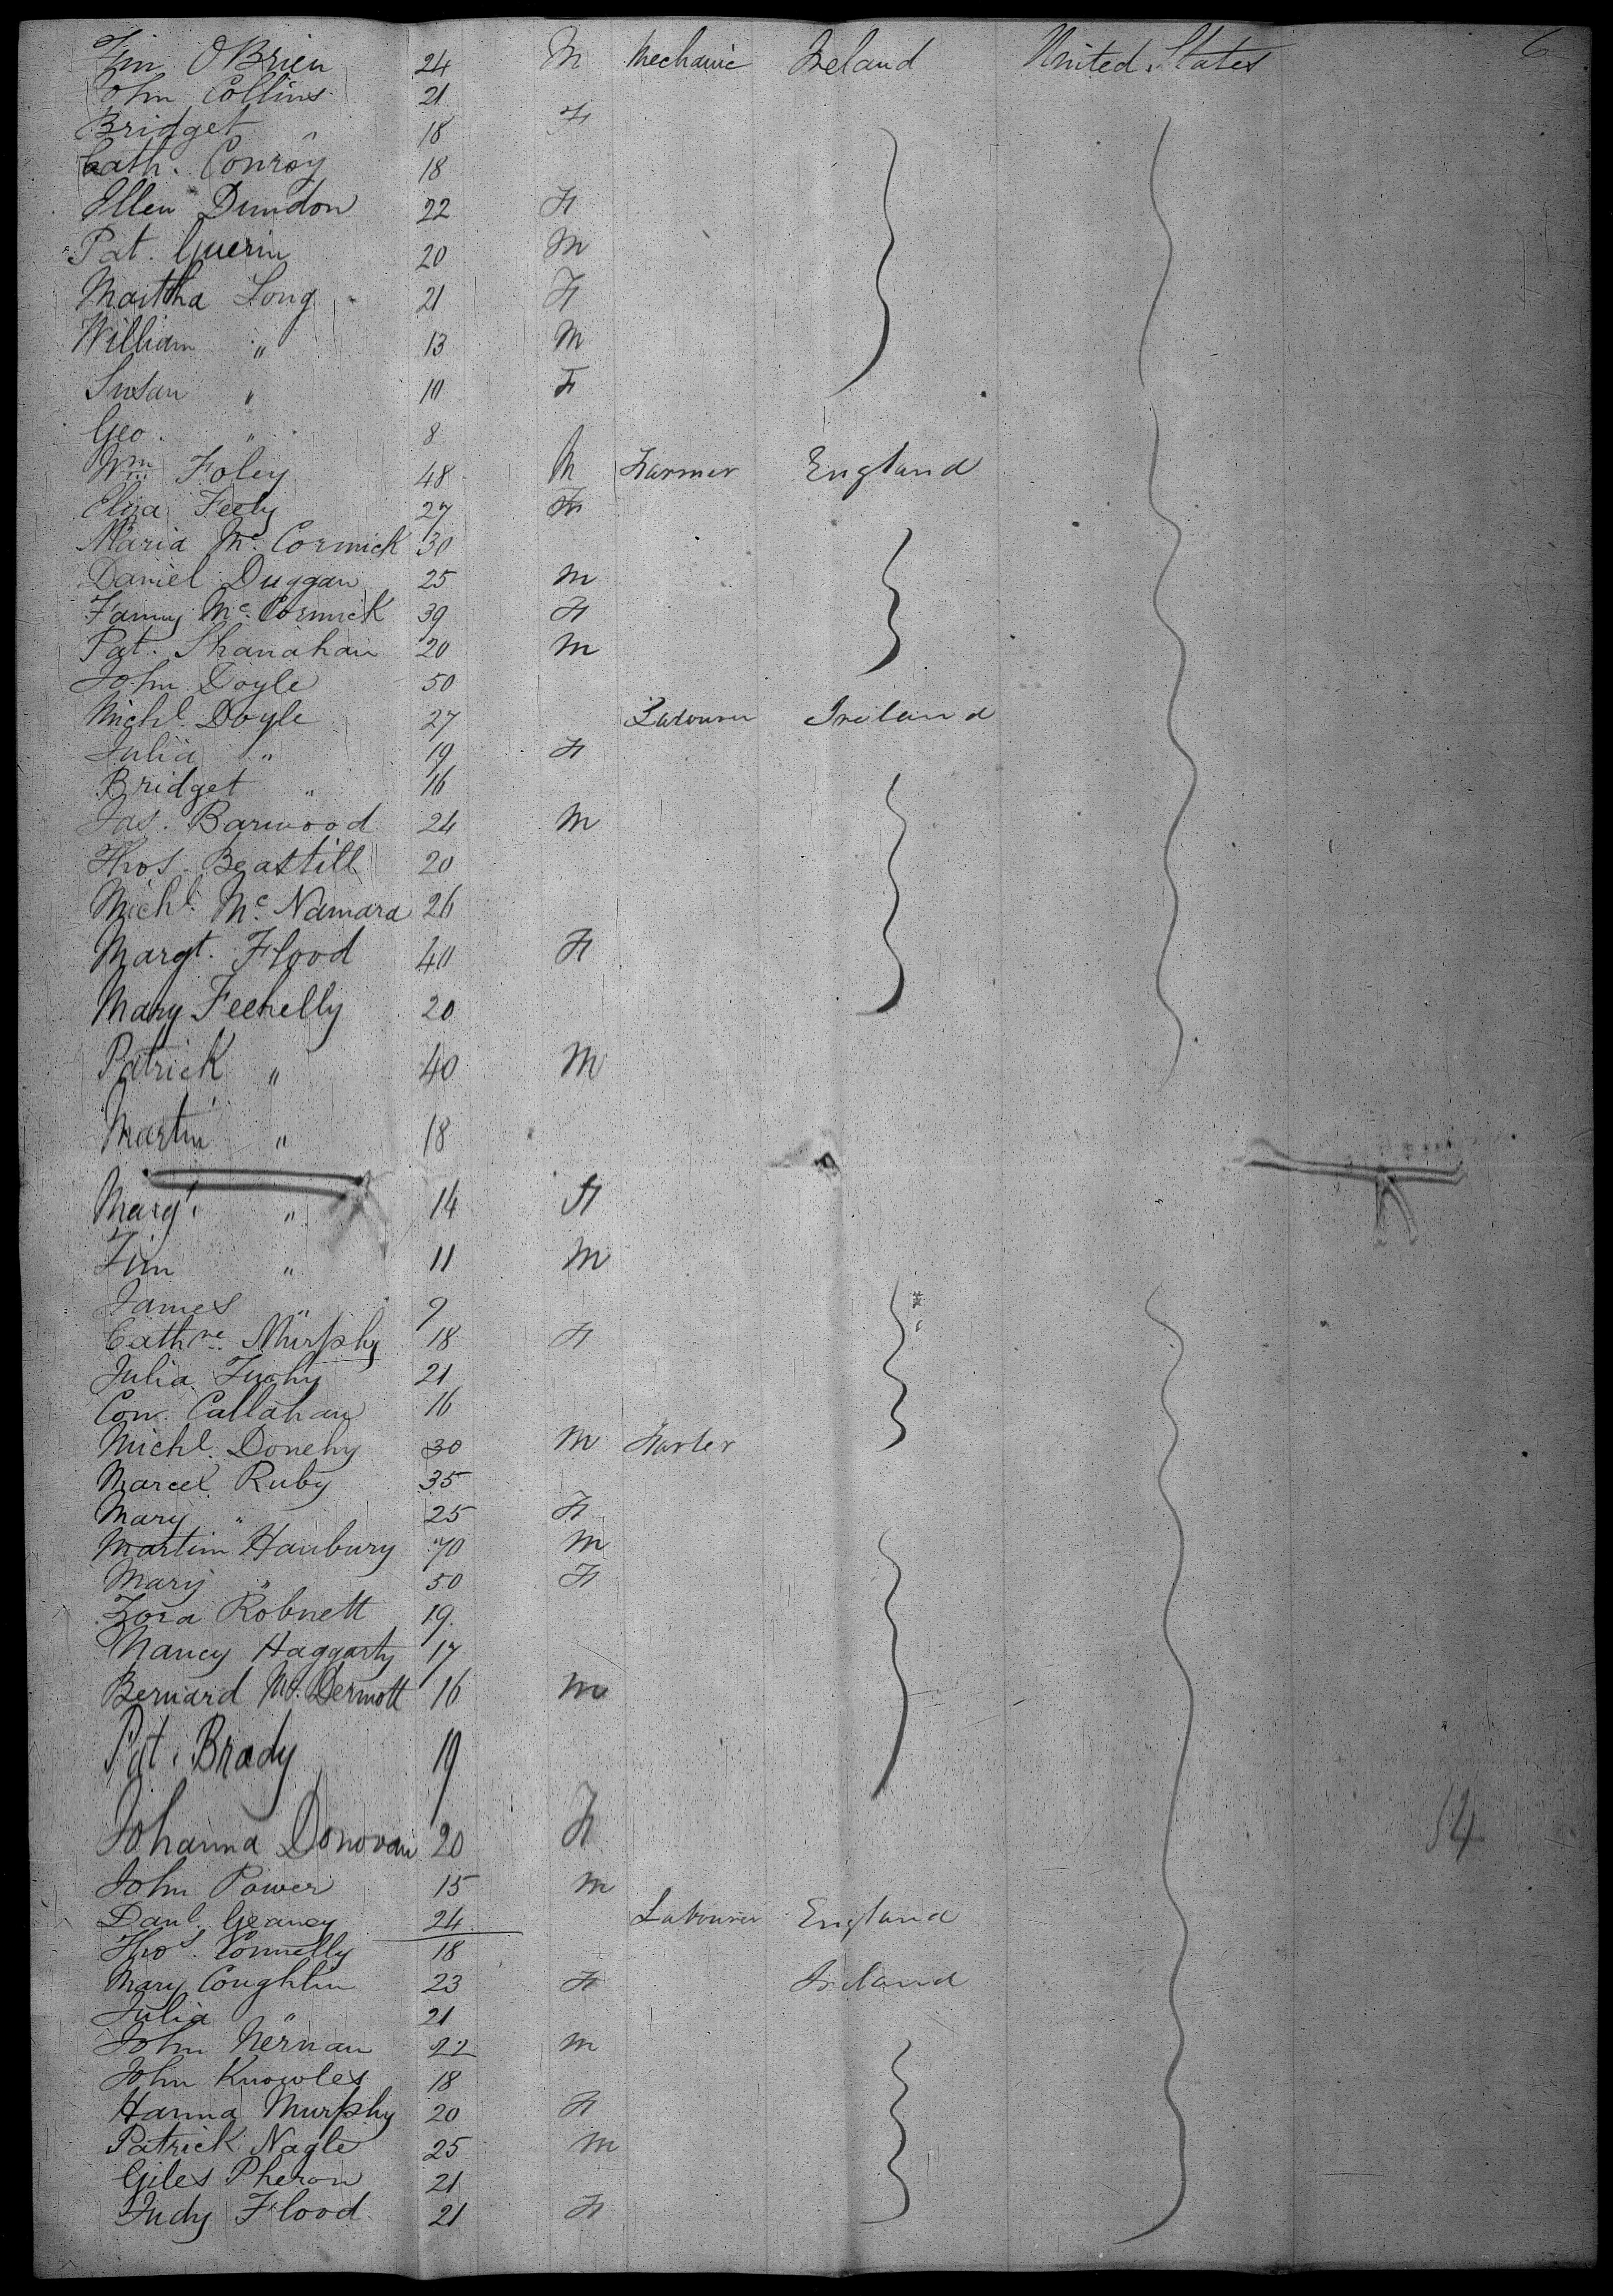 6
Tim O'Brien 24 M Mechanic Ireland United States
John Collins 21
Bridget " 18 F
Cath. Conroy 18
Ellen Dundon 22 F
Pat. Guerin 20 M
Martha Long 21 F
William " 13 M
Susan " 10 F
Geo. " 8
Wm Foley 48 M Farmer England
Eliza Feely 27 F
Maria Mc Cormick 30
Daniel Duggan 25 M
Fanny Mc Cormick 39 F
Pat. Shanahan 20 M
John Doyle 50
Michl. Doyle 27 Labourer Ireland
Julia " 19 F
Bridget " 16
Jas. Barwood 24 M
Thos. Beattill 20
Michl. Mc Namara 26
Margt. Flood 40 F
Mary Feehelly 20
Patrick " 40 M
Martin " 18
Margt. " 14 F
Tim " 11 M
James " 9
Cathne. Murphy 18 F
Julia Tuohy 21
Con. Callahan 16
Michl. Donehy 30 M
Marcel Ruby 35
Mary " 25 F
Martin Hanbury 70 M
Mary " 50 F
Zora Robnett 19
Nancy Haggarty 17
Bernard Mc. Dermott 16 M
Pat. Brady 19
Johanna Donovan 20 F 54
John Power 15 M
Danl. Geaney 24 Labourer England
Thos. Connelly 18
Mary Coughlin 23 F Ireland
Julia " 21
John Nernan 22 M
John Knowles 18
Hanna Murphy 20 F
Patrick Nagle 25 M
Giles Pheron 21
Judy Flood 21 F